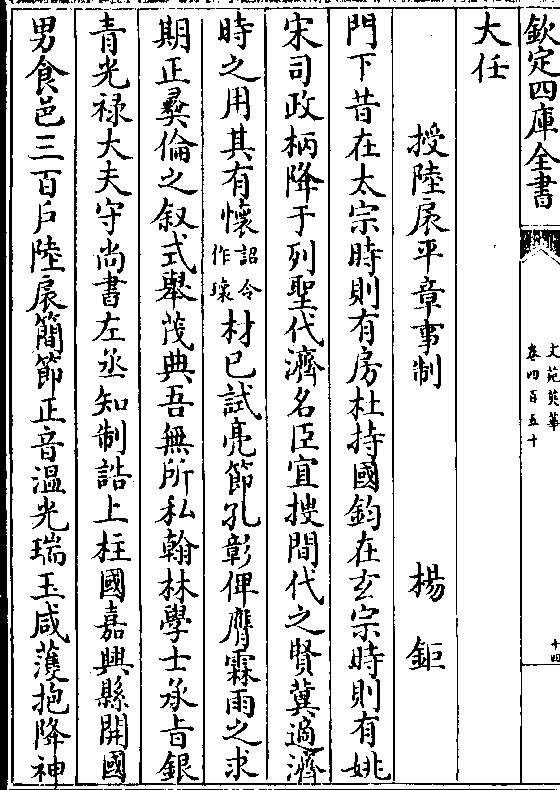 欽定四庫全書
文苑英華
卷四百五十
十四
大任
授陸扆平章事制
楊鉅
門下昔在太宗時則有房杜持國鈞在玄宗時則有姚
宋司政柄降于列聖代濟名臣宜搜間代之賢冀適濟
時之用其有懷詔令作瓌材已試亮節孔彰俾膺霖雨之求
期正彛倫之叙式舉茂典吾無所私翰林學士承旨銀
青光禄大夫守尚書左丞知制誥上柱國嘉興縣開國
男食邑三百戶陸扆簡節正音溫光瑞玉咸蒦抱降神